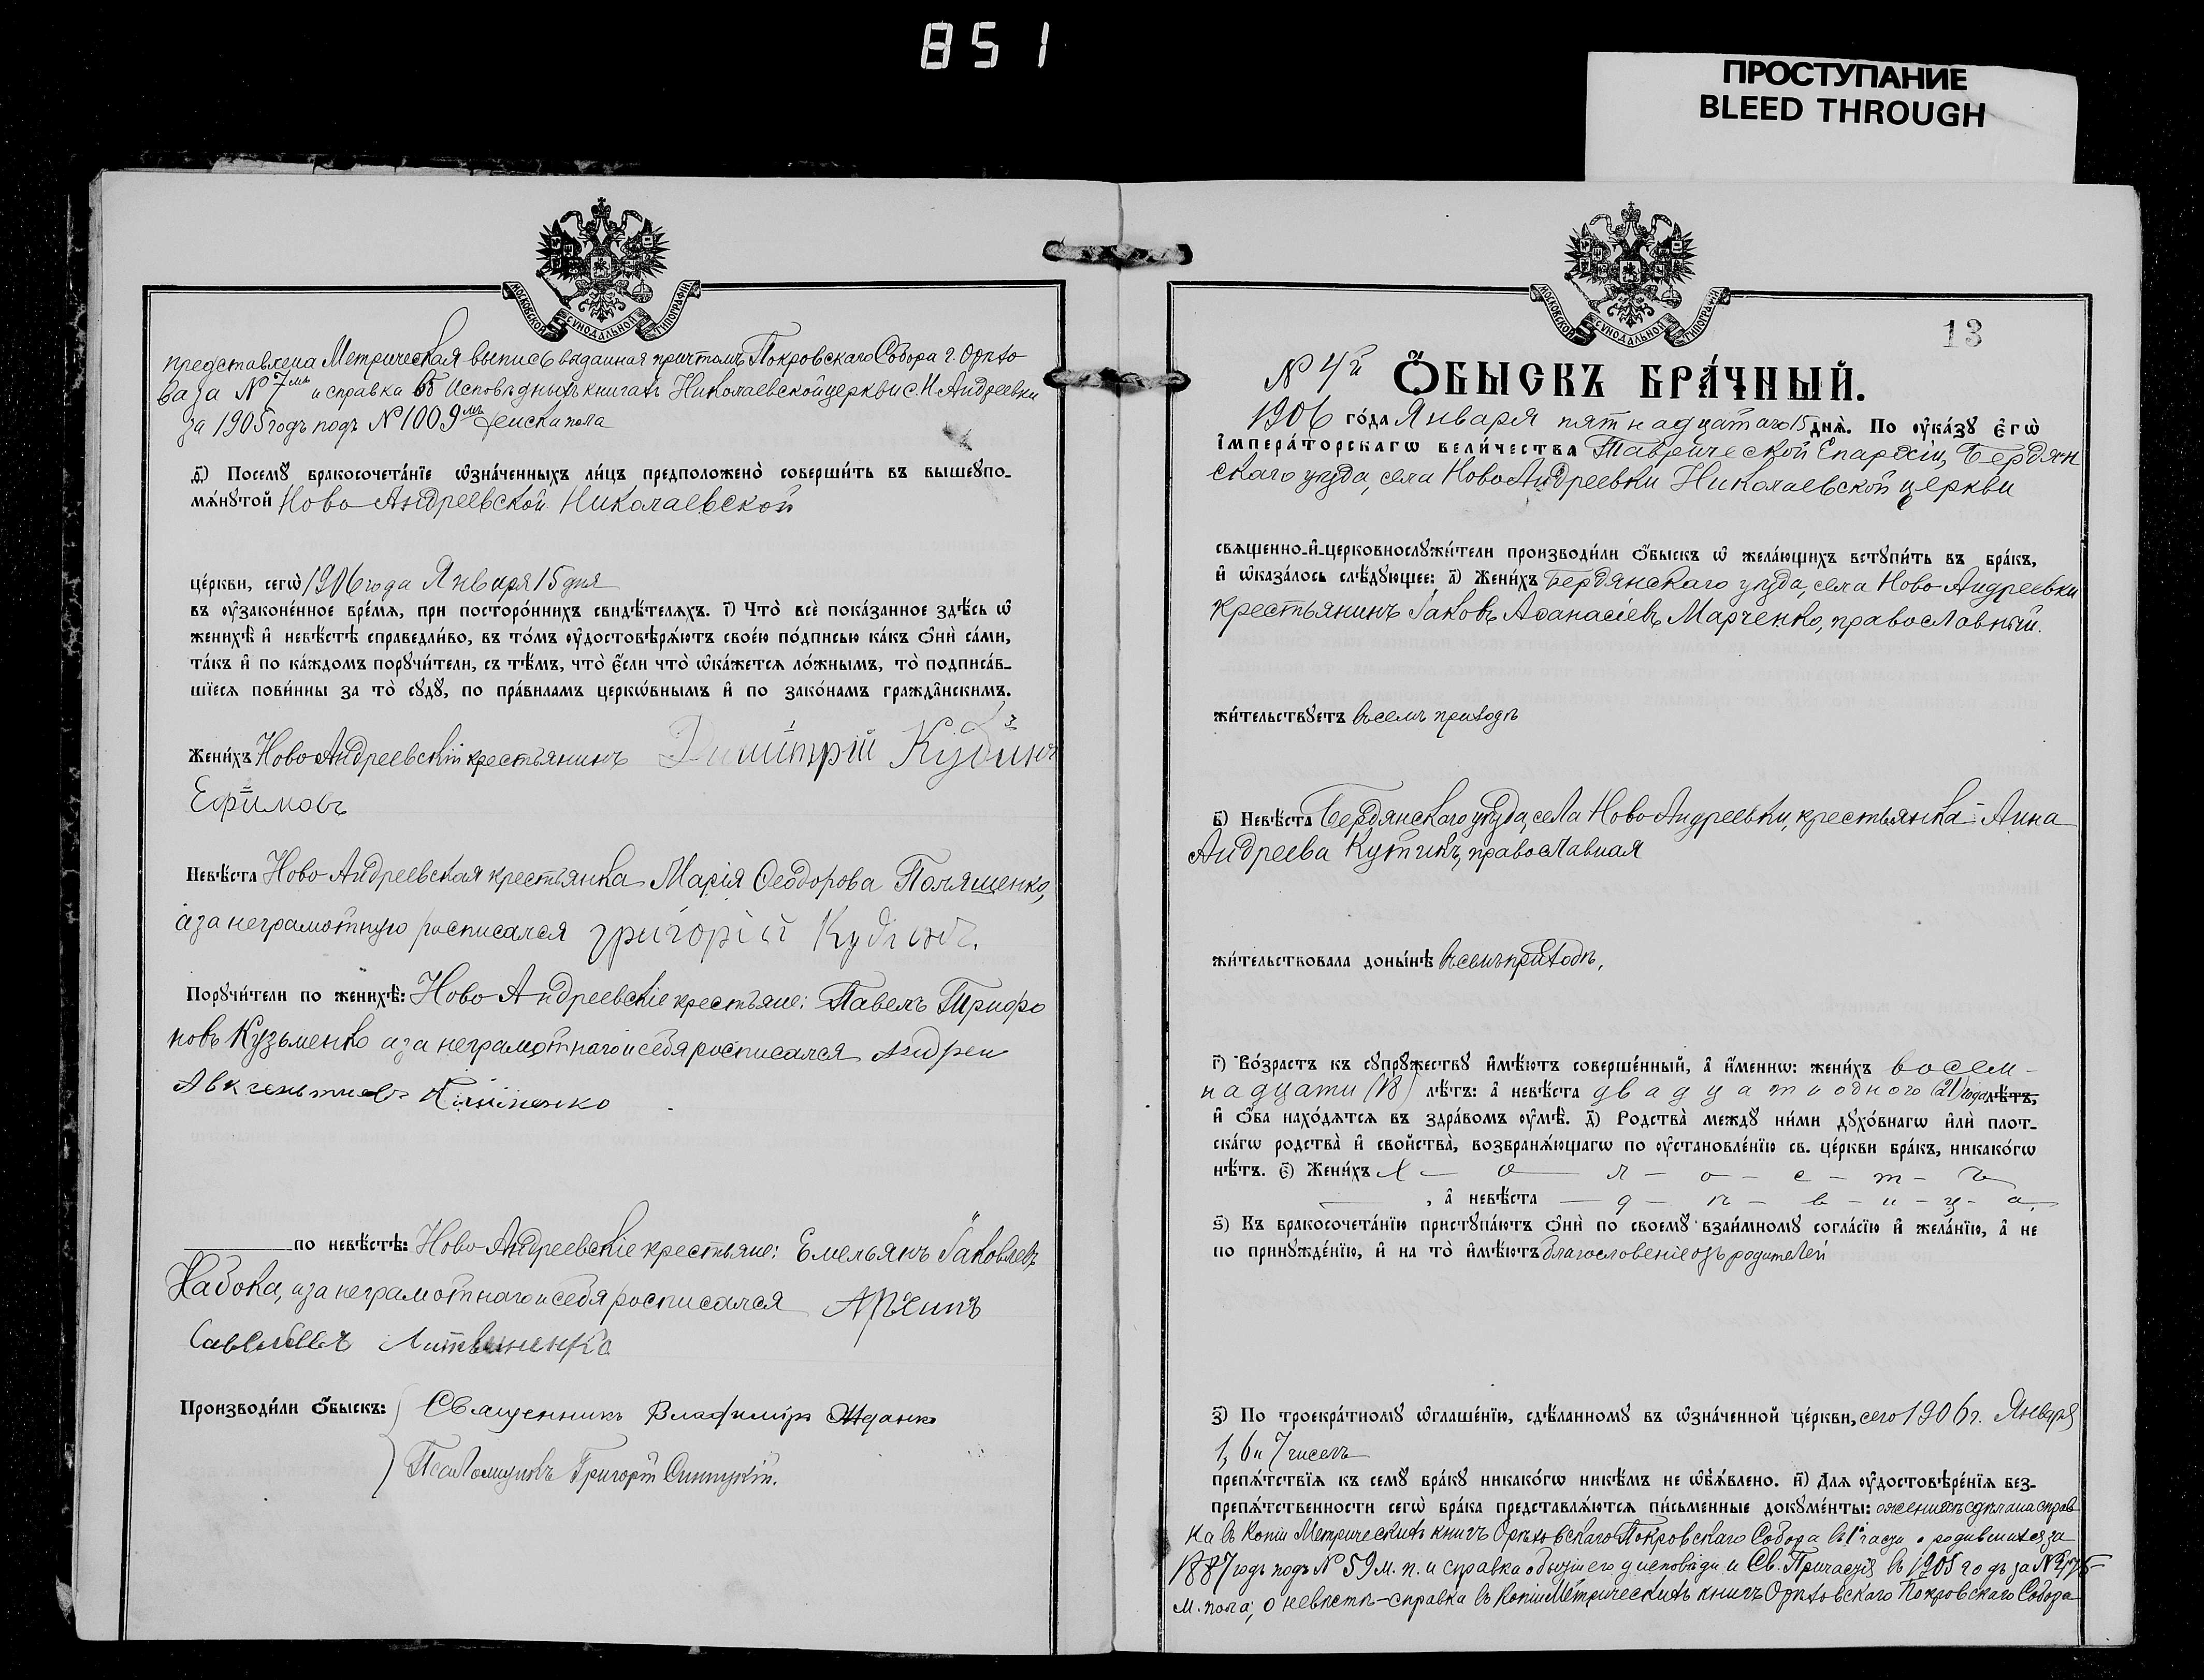 851
ПРОСТУПАНИЕ
BLEED THROUGH
МОСКОВСКОЙ СѴНОДАЛЬНОЙ ТИПОГРАФІИ
представлена Метрическая выпись выданная причтомъ Покровскаго Собора г. Орѣхо
ва за № 7мъ и справка въ Исповѣдныхъ книгахъ Николаевской церкви с. Н-Андреевки
за 1905 годъ подъ № 1009мъ женска пола
д҃) Посемꙋ бракосочета́нїе ѡзна́ченныхъ ли́цъ предположено̀ соверши́ть въ вышеꙋпо-
мѧ́нꙋтой Ново Андреевской Николаевской
це́ркви, сегѡ̀ 1906 года Января 15 дня
въ ᲂу҆законе́нное вре́мѧ, при посторо́ннихъ свидѣ́телѧхъ. і҃) Что̀ всѐ пока́занное здѣ́сь ѡ҆
женихѣ̀ и҆ невѣ́стѣ справедли́во, въ то́мъ ᲂу҆достовѣрѧ́ютъ свое́ю по́дписью ка́къ ѻ҆нѝ са́ми,
та́къ и҆ по ка́ждомъ порꙋчи́тели, съ тѣ́мъ, что̀ є҆́сли что̀ ѡ҆ка́жетсѧ ло́жнымъ, то̀ подписа́в-
шїесѧ пови́нны за то̀ сꙋдꙋ̀, по пра́виламъ церко́внымъ и҆ по зако́намъ гражда́нскимъ.
Жени́хъ Ново Андреевскій крестьянинъ Димитрій Кудинъ
Ефимовъ
Невѣ́ста Ново Андреевская крестьянка Марія Ѳеодорова Поляшенко,
а за неграмотную росписался григорій Кудинъ.
Порꙋчи́тели по женихѣ̀: Ново Андреевскіе крестьяне: Павелъ Трифо
новъ Кузьменко а за неграмотнаго и себя росписался Андреи
по невѣ́стѣ: Ново Андреевскіе крестьяне: Емельянъ Іаковлевъ
Набока, а за неграмотнаго и себя росписался Архипъ
Савельевъ Литвиненко
Производи́ли ѻ҆́быскъ: Священникъ Владимиръ Жданко
Псаломщикъ Григорій
МОСКОВСКОЙ СѴНОДАЛЬНОЙ ТИПОГРАФІИ
13
№ 4й Ѻ҆БЫСКЪ БРА́ЧНЫЙ.
1906 го́да Января пятнадцатаго 15 днѧ̀. По ᲂу҆ка́зꙋ є҆гѡ̀
і҆мпера́торскагѡ вели́чества Таврической Епархіи, Бердян
скаго уѣзда, села Ново Андреевки Николаевской церкви
свѧщенно-и҆-церковнослꙋжи́тели производи́ли ѻ҆́быскъ ѡ҆ жела́ющихъ встꙋпи́ть въ бра́къ,
и҆ ѡ҆каза́лось слѣ́дꙋющее: а҃) Жени́хъ Бердянскаго уѣзда, села Ново Андреевки
крестьянинъ Іаковъ Аѳанасіевъ Марченко, православный.
жи́тельствꙋетъ въ семъ приходѣ
в҃) Невѣ́ста Бердянскаго уѣзда, села Ново Андреевки, крестьянка Анна
Андреева Кутинъ, православная
жи́тельствовала доны́нѣ въ семъ приходѣ,
г҃) Во́зрастъ къ сꙋпрꙋ́жествꙋ и҆мѣ́ютъ соверше́нный, а҆ и҆́меннѡ: жени́хъ восем-
надцати (18) лѣ́тъ: а҆ невѣ́ста двадцати одного (21) года лѣ́тъ,
и҆ ѻ҆́ба нахо́дѧтсѧ въ здра́вомъ ᲂу҆мѣ̀. д҃) Родства̀ междꙋ ни́ми дꙋхо́внагѡ и҆лѝ пло́т-
скагѡ родства̀ и҆ свойства̀, возбранѧ́ющагѡ по ᲂу҆становле́нїю св. це́ркви бра́къ, никако́гѡ
нѣ́тъ. є҃) Жени́хъ х-о-л-о-с-т-ъ
, а҆ невѣ́ста - д - ѣ - в - и - ц - а.
ѕ҃) Къ бракосочета́нїю пристꙋпа́ютъ ѻ҆нѝ по своемꙋ̀ взаи́мномꙋ согла́сїю и҆ жела́нїю, а҆ не
по принꙋжде́нїю, и҆ на то̀ и҆мѣ́ютъ благословеніе отъ родителей
з҃) По троекра́тномꙋ ѡ҆глаше́нїю, сдѣ́ланномꙋ въ ѡ҆зна́ченной це́ркви, сего 1906 г. Января
1, 6 и 7 чиселъ
препѧ́тствїѧ къ семꙋ̀ бра́кꙋ никако́гѡ никѣ́мъ не ѡ҆б̾ѧ́влено. и҃) Длѧ ᲂу҆достовѣре́нїѧ без-
препѧ́тственности сегѡ̀ бра́ка представлѧ́ютсѧ пи́сьменные докꙋме́нты: о женихѣ сдѣлана справ
ка въ копіи Метрическихъ книгъ Орѣховскаго Покровскаго Собора въ 1й части о родившихся за
1887 годъ подъ № 59 м. п. и справка о бытіи его у исповѣди и Св. Причастія въ 1905 годъ за №
м. пола; о невѣстѣ - справка въ копіи Метрическихъ книгъ Орѣховскаго Покровскаго Собора